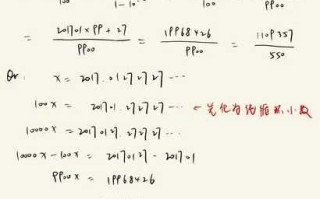 100 1-10 100 9900
= 201701×99+27 / 9900 = 19968426 / 9900 = 1109357 / 550
Or: x = 2017.01272727···
100x = 201701.272727··· ← 先化为纯循环小数
10000x = 20170127.2727···
10000x-100x = 20170127 - 201701
9900x = 19968426